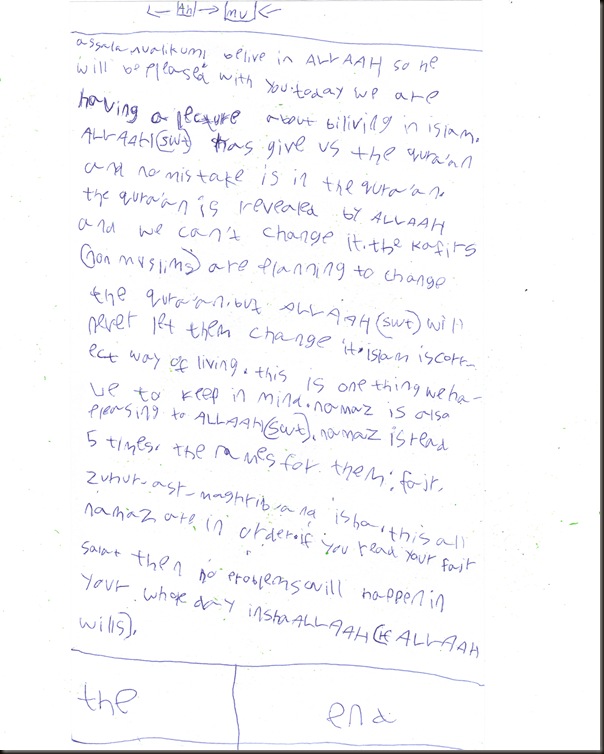 assalamualikum, belive in ALLAAH so he
will be pleased with you.today we are
having a lecture about biliving in islam.
ALLAAH(swt) has give us the qura'an
and no mistake is in the qura'an.
the qura'an is revealed by ALLAAH
and we can't change it.the kafirs
(non muslims) are planning to change
the qura'an.but ALLAAH(swt) will
never let them change it.islam is corr-
ect way of living.this is one thing we ha-
ve to keep in mind.namaz is also
pleasing to ALLAAH(swt).namaz is read
5 times. the names for them: fajr,
zuhur-asr-maghrib-and isha.this all
namaz are in order.if you read your fajr
salat then no problems will happen in
your whole day inshaALLAAH(if ALLAAH
wills).
the end